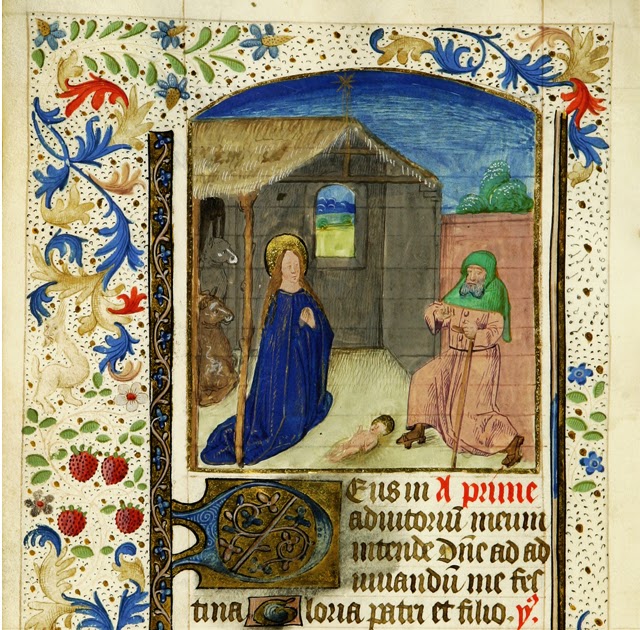 Deus in A prime
adiutoriū meum
intende Dn̄e ad ad
iuuandū me fes
tina Gloria patri et filio. ẏ.